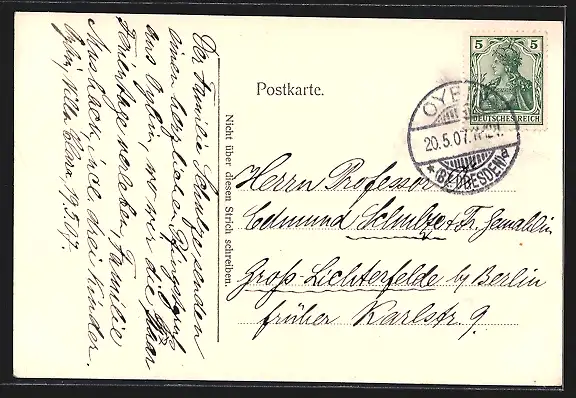 Der Familie Schulze senden
einen herzlichen Pfingstgruß
aus Oybin, wo wir die
Ferientage verleben, Familie
incl. drei Kinder.
Oybin, Villa 19.5.07.
Nicht über diesen Strich schreiben.
Postkarte.
5 5
DEUTSCHES REICH
OYBIN
20.5.07.
*(BZ. DRESDEN)a
Herrn Professor
Edmund Schulze & Fr. Gemahlin
Groß-Lichterfelde b/ Berlin
früher Karlstr. 9.